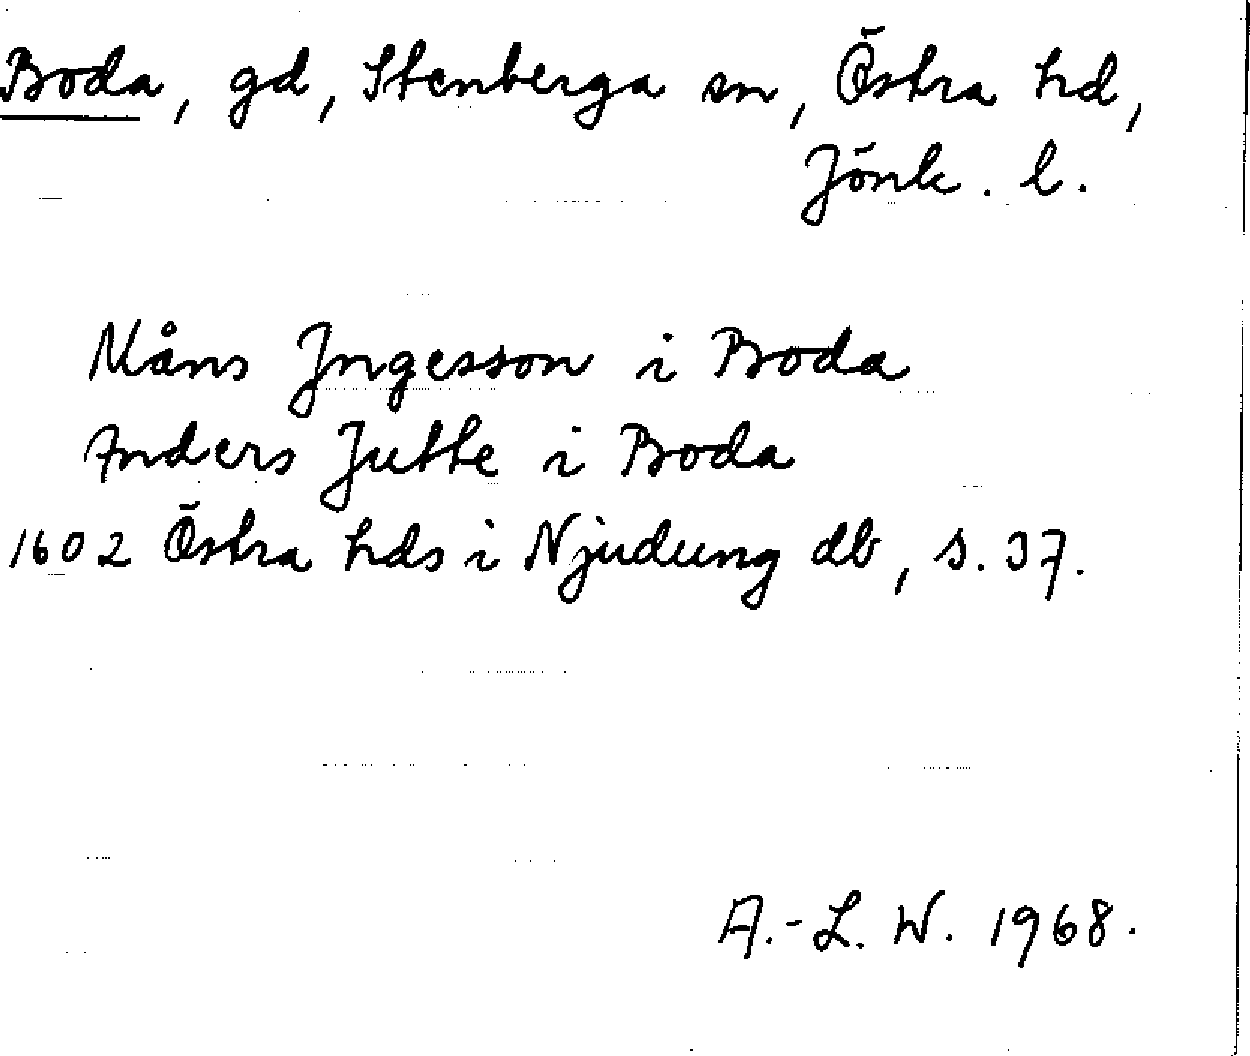 Boda, gd, Stenberga sn, Östra hd,
Jönk. l.
Måns Jngesson i Boda
Anders Jutte i Boda
1602 Östra hds i Njudung db, s. 37.
A.-L. W. 1968.